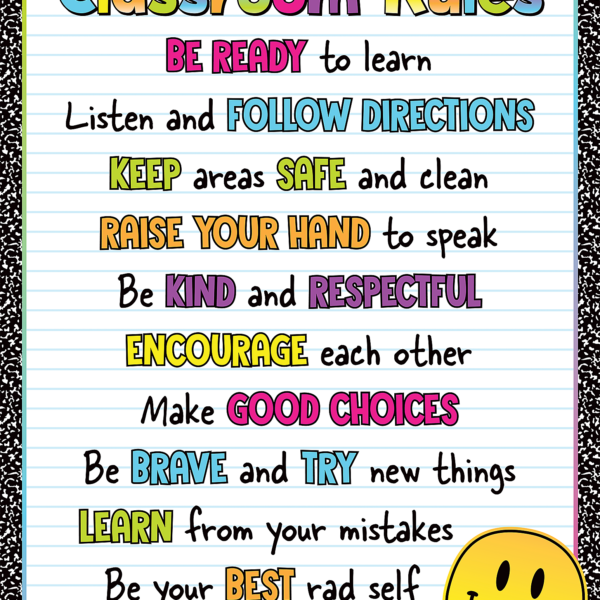 Classroom Rules
BE READY to learn
Listen and FOLLOW DIRECTIONS
KEEP areas SAFE and clean
RAISE YOUR HAND to speak
Be KIND and RESPECTFUL
ENCOURAGE each other
Make GOOD CHOICES
Be BRAVE and TRY new things
LEARN from your mistakes
Be your BEST rad self